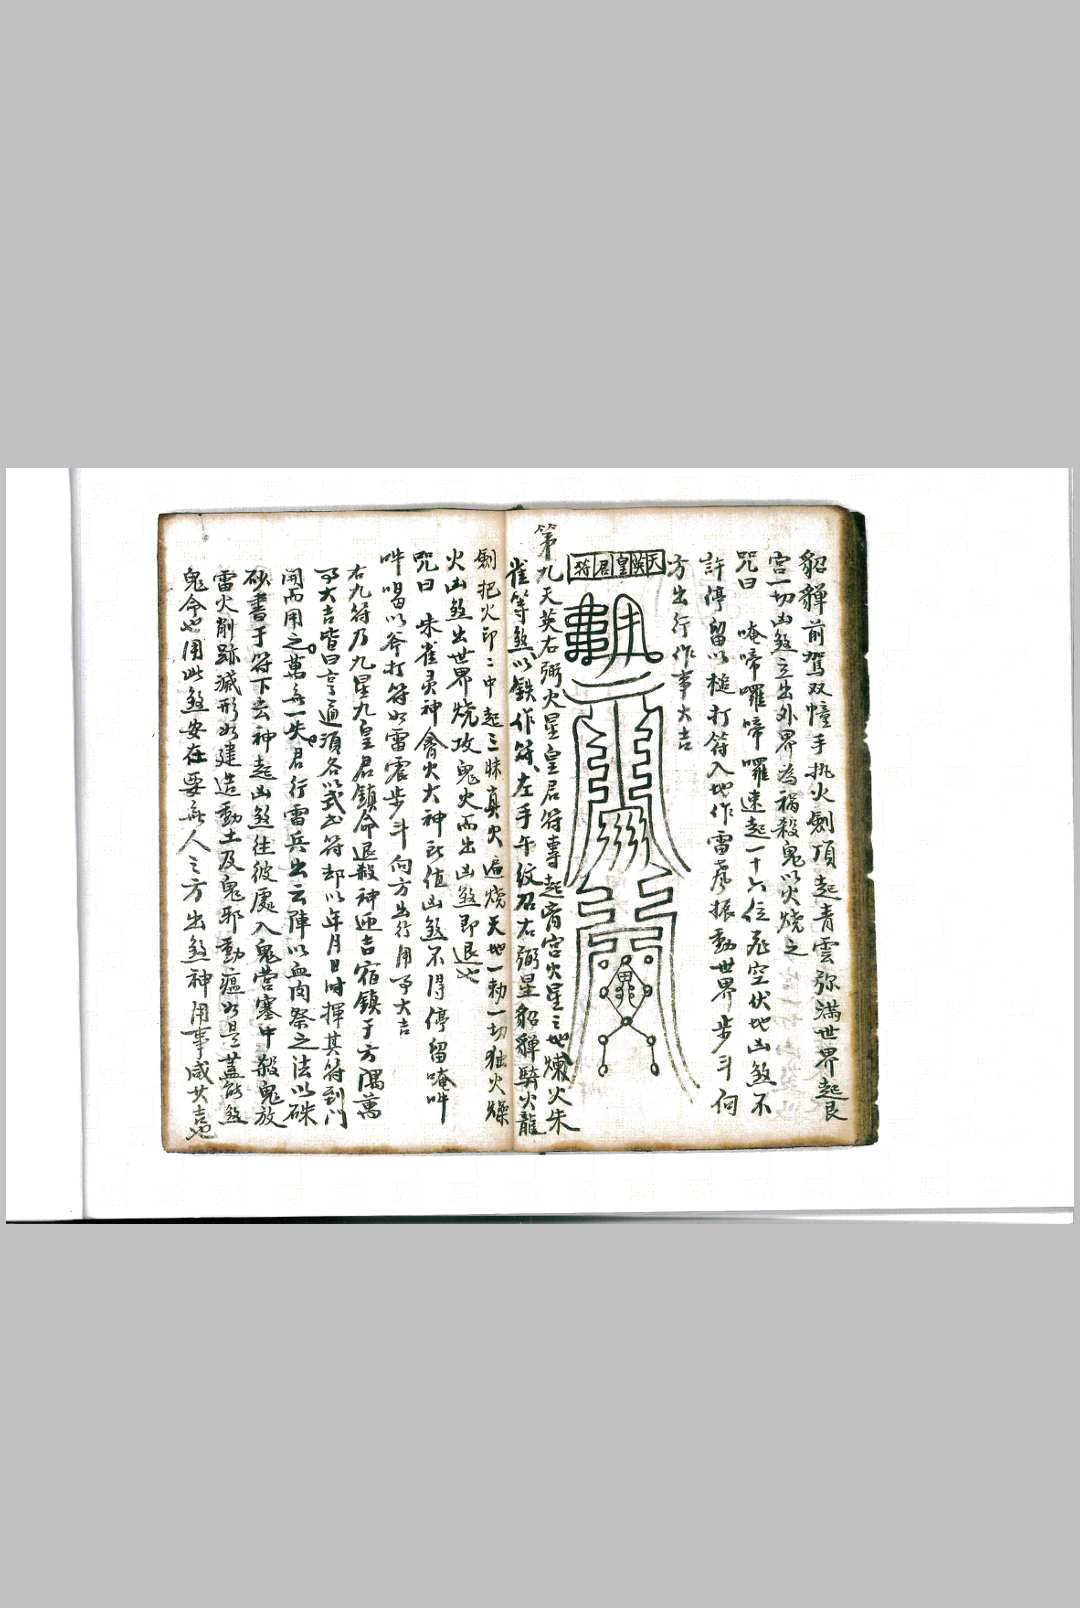 貂蟬前駕双幢手执火劍頂起青雲弥滿世界起艮
宫一切凶煞立出外界為祸殺鬼以火燒之
咒曰 唵啼囉啼囉速起一十六位飛空伏地凶煞不
許停留以槌打符入地作雷聲振動世界步斗向
方出行作事大吉
天英皇君符
第九天英右弼火星皇君符專起离宫火星之地煉火朱
雀等煞以鉄作符左手午纹召右弼星貂蟬騎火龍
劍把火印二中起三昧真火遍燒天地一勅一切独火燥
火凶煞出世界燒攻鬼火而出凶煞即退也
咒曰 朱雀灵神會火大神所值凶煞不得停留唵吽
吽喝以斧打符如雷震步斗向方出行用事大吉
右九符乃九星九皇君鎮命退殺神迎吉宿鎮于方隅萬
事大吉皆曰亨通須各以式出符却以年月日時揮其符到门
開而用之萬無一失君行雷兵出云陣以血肉祭之法以硃
砂書于符下去神起凶煞往彼處入鬼营塞中殺鬼放
雷火削跡滅形如建造動土及鬼邪動瘟如是蓋能煞
鬼命也用此煞安在要無人之方出煞神用事咸大吉也